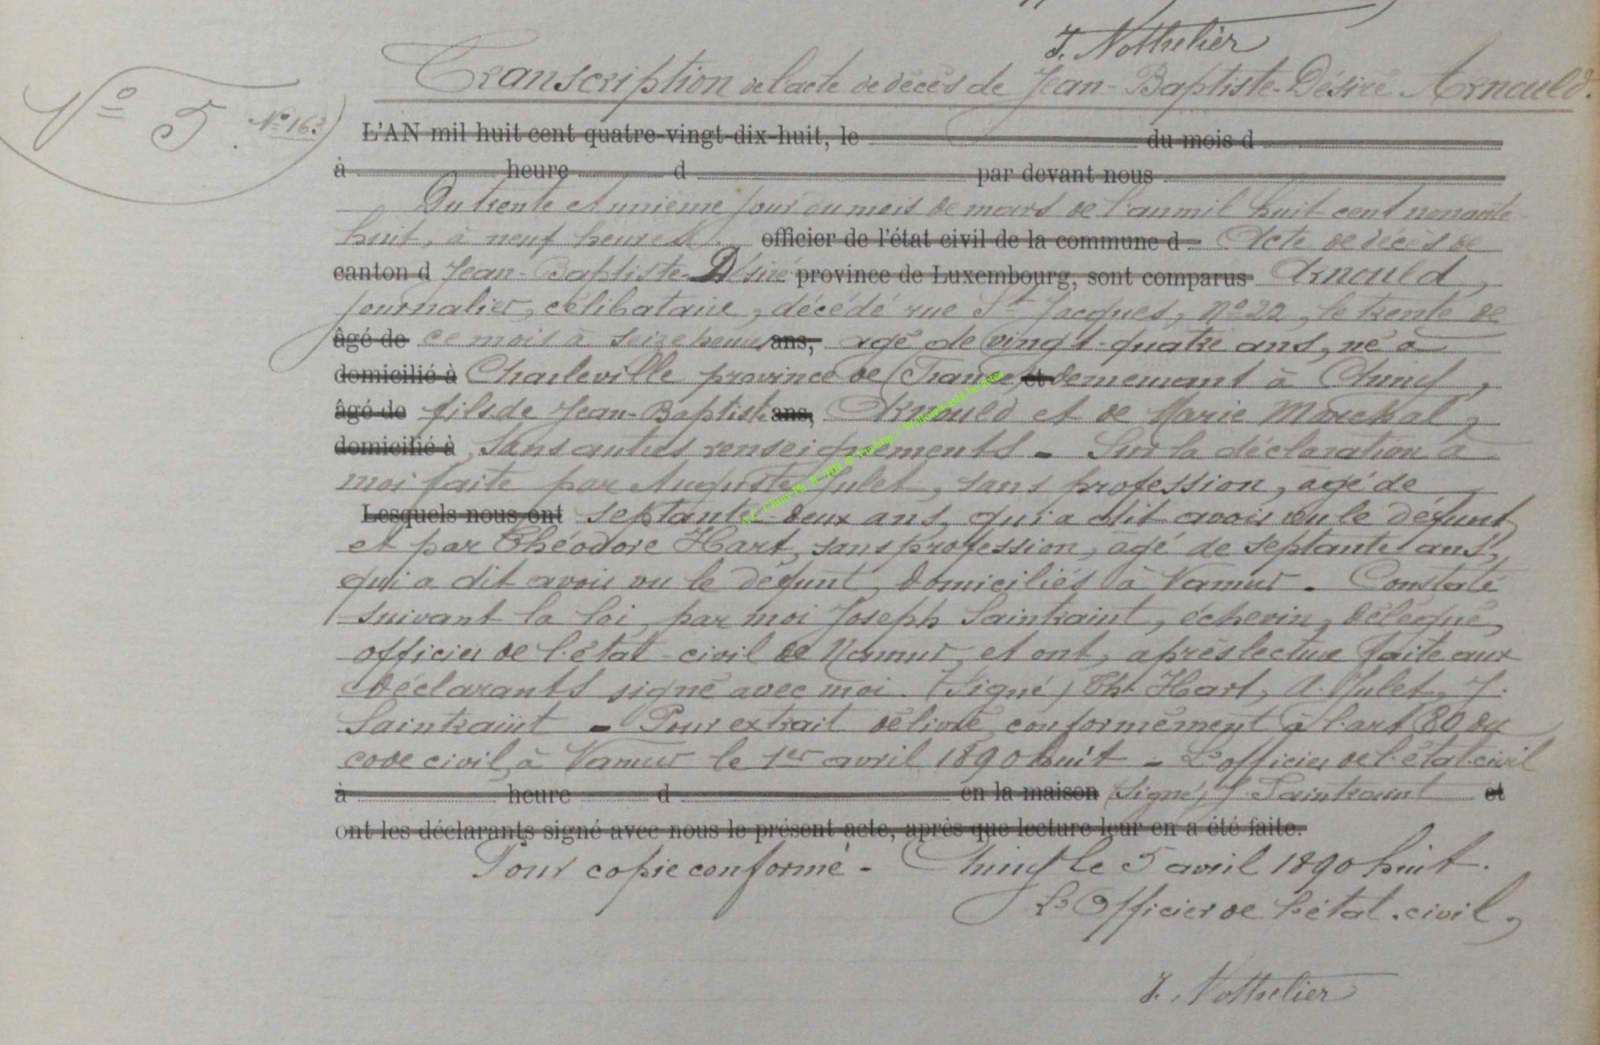 J. Nothelier
Transcription de l'acte de décès de Jean-Baptiste-Désiré Arnould.
N° 5. N° 163
L'AN mil huit cent quatre-vingt-dix-huit, le du mois d
à heure d par devant nous
Du trente et unième jour du mois de mars de l'an mil huit cent nonante
huit, à neuf heures officier de l'état civil de la commune d Acte de décès de
canton d Jean-Baptiste-Désiré province de Luxembourg, sont comparus Arnould,
journalier, célibataire, décédé rue St Jacques, n° 22, le trente de
âgé de ce mois à seize heures ans, âgé de vingt-quatre ans, né à
domicilié à Charleville province de (France) et demeurant à Chiny,
âgé de fils de Jean-Baptiste ans, Arnould et de Marie Maréchal,
domicilié à sans autres renseignements - Sur la déclaration à
moi faite par Auguste Julet, sans profession, âgé de
Lesquels nous ont septante-deux ans, qui a dit avoir vu le défunt
et par Théodore Hart, sans profession, âgé de septante ans,
qui a dit avoir vu le défunt, domiciliés à Namur. Constaté
suivant la loi, par moi Joseph Saintraint, échevin, délégué,
officier de l'état-civil de Namur, et ont, après lecture faite aux
déclarants signé avec moi. (Signé) Th. Hart, A. Julet, J.
Saintraint - Pour extrait délivré conformément à l'art 80 du
code civil, à Namur le 1er avril 1890 huit - L'officier de l'état-civil
à heure d en la maison (Signé) J. Saintraint et
ont les déclarants signé avec nous le présent acte, après que lecture leur en a été faite.
Pour copie conforme - Chiny le 5 avril 1890 huit.
L'Officier de l'état-civil,
J. Nothelier